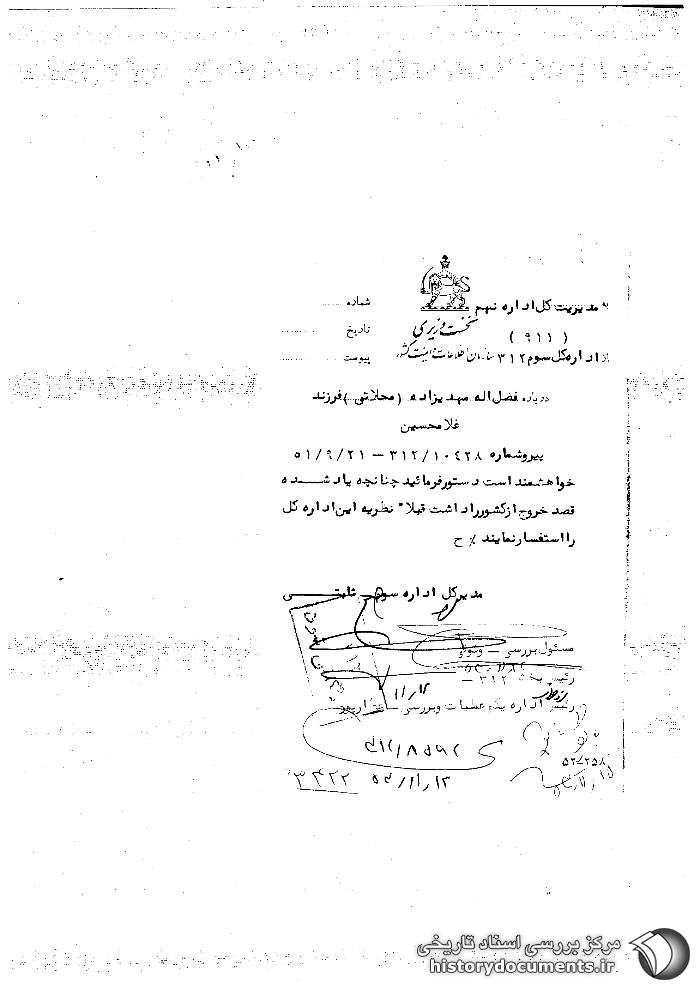 به مدیریت کل اداره نهم
شماره
نخست وزیری
( ۹۱۱ )
تاریخ
از اداره کل سوم ۳۱۲
سازمان اطلاعات و امنیت کشور
پیوست
درباره فضل اله مهدیزاده (محلاتی) فرزند
غلامحسین
پیرو شماره ۳۱۲/۱۰۴۲۸ – ۵۱/۹/۲۱
خواهشمند است دستور فرمائید چنانچه یاد شده
قصد خروج از کشور را داشت قبلا" نظریه این اداره کل
را استفسار نمایند ٪ ح
مدیر کل اداره سوم ثابتی
مسئول بررسی –
رئیس بخش ۳۱۲ –
رئیس اداره یکم عملیات و بررسی –
۳۱۲/۸۵۹۲
۵۲/۱۱/۱۲
۳۴۲۲
مرکز بررسی اسناد تاریخی
historydocuments.ir